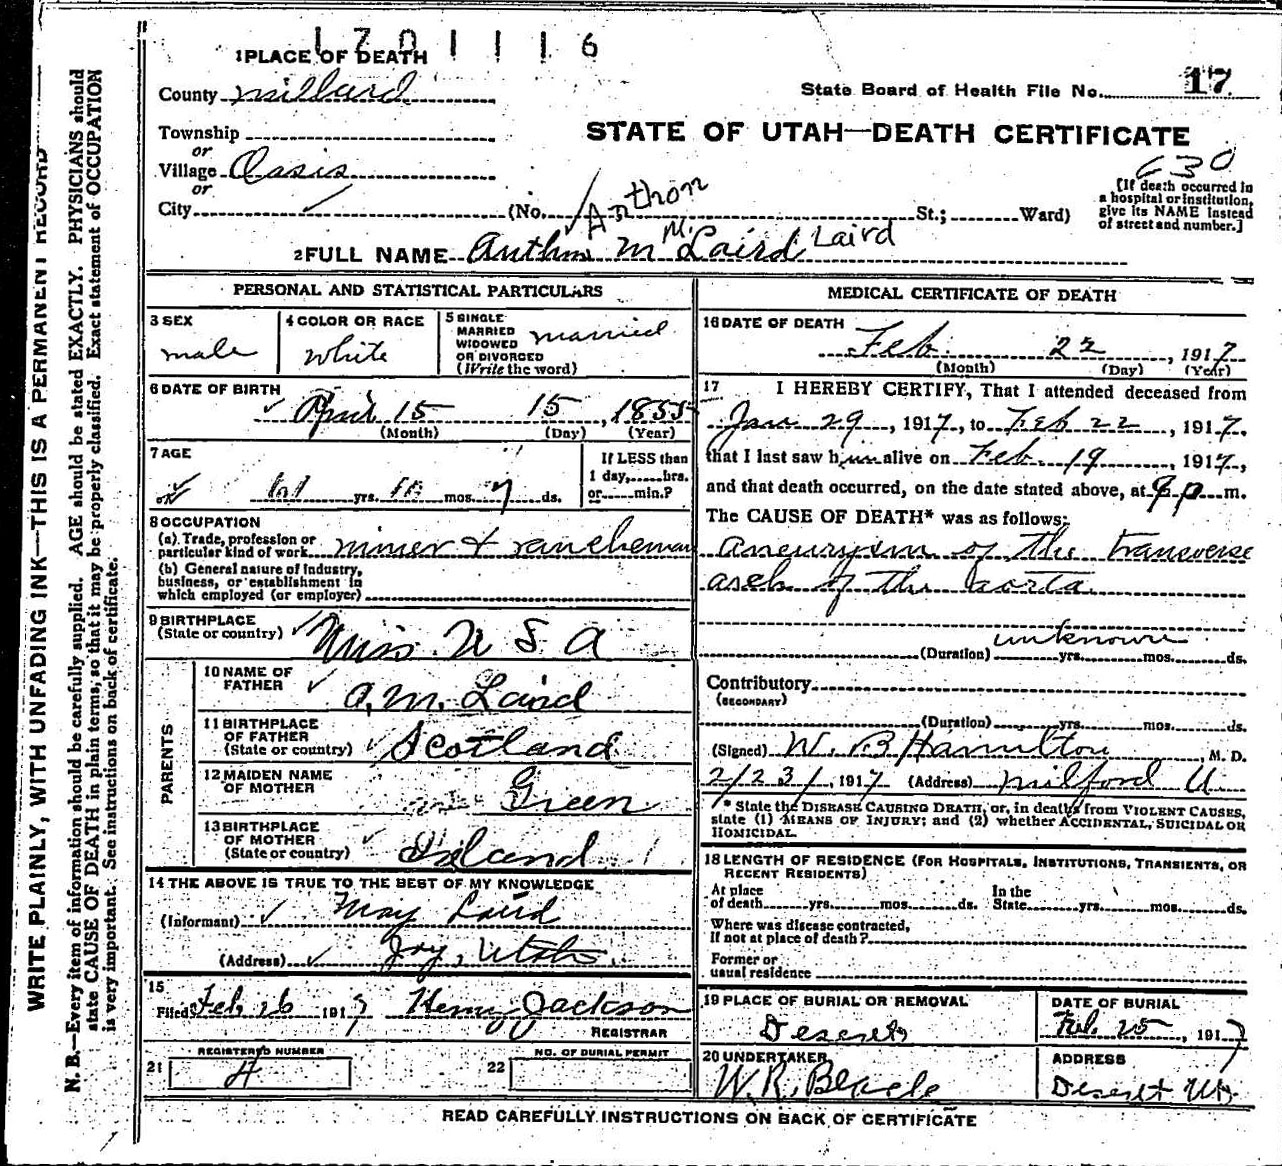 1701116
1 PLACE OF DEATH
County Millard
State Board of Health File No. 17
Township
or
STATE OF UTAH—DEATH CERTIFICATE
Village Oasis
or
630
City (No. St.; Ward)
[If death occurred in
a hospital or institution,
give its NAME instead
of street and number.]
Anthon Mc Laird
2 FULL NAME Anthon M Laird
PERSONAL AND STATISTICAL PARTICULARS
3 SEX
male
4 COLOR OR RACE
white
5 SINGLE
MARRIED
WIDOWED
OR DIVORCED
(Write the word)
married
6 DATE OF BIRTH
April 15 15, 1855
(Month) (Day) (Year)
7 AGE
61 yrs. 10 mos. 7 ds.
If LESS than
1 day, hrs.
or min.?
8 OCCUPATION
(a) Trade, profession or
particular kind of work miner & rancheman
(b) General nature of industry,
business, or establishment in
which employed (or employer)
9 BIRTHPLACE
(State or country) Miss. U S A
PARENTS
10 NAME OF
FATHER A. M. Laird
11 BIRTHPLACE
OF FATHER
(State or country) Scotland
12 MAIDEN NAME
OF MOTHER Green
13 BIRTHPLACE
OF MOTHER
(State or country)
14 THE ABOVE IS TRUE TO THE BEST OF MY KNOWLEDGE
(Informant) May Laird
(Address) Joy, Utah
15
Filed Feb. 26 1917 Henry Jackson
REGISTRAR
REGISTERED NUMBER
21 4
NO. OF BURIAL PERMIT
22
MEDICAL CERTIFICATE OF DEATH
16 DATE OF DEATH
Feb. 22, 1917
(Month) (Day) (Year)
17 I HEREBY CERTIFY, That I attended deceased from
Jan 29, 1917, to Feb 22, 1917,
that I last saw him alive on Feb. 19, 1917,
and that death occurred, on the date stated above, at p m.
The CAUSE OF DEATH* was as follows:
aneurysm of the transverse
arch of the aorta
unknown
(Duration) yrs. mos. ds.
Contributory
(SECONDARY)
(Duration) yrs. mos. ds.
(Signed) W. B Hamilton, M. D.
2/23/, 1917 (Address) Milford U.
* State the DISEASE CAUSING DEATH, or, in deaths from VIOLENT CAUSES,
state (1) MEANS OF INJURY; and (2) whether ACCIDENTAL, SUICIDAL OR
HOMICIDAL.
18 LENGTH OF RESIDENCE (FOR HOSPITALS, INSTITUTIONS, TRANSIENTS, OR
RECENT RESIDENTS)
At place
of death yrs. mos. ds.
In the
State yrs. mos. ds.
Where was disease contracted,
If not at place of death?
Former or
usual residence
19 PLACE OF BURIAL OR REMOVAL
Deseret
DATE OF BURIAL
Feb. 25, 1917
20 UNDERTAKER
W. R.
ADDRESS
Deseret Ut
READ CAREFULLY INSTRUCTIONS ON BACK OF CERTIFICATE
WRITE PLAINLY, WITH UNFADING INK—THIS IS A PERMANENT RECORD
N. B.—Every item of information should be carefully supplied. AGE should be stated EXACTLY. PHYSICIANS should
state CAUSE OF DEATH in plain terms, so that it may be properly classified. Exact statement of OCCUPATION
is very important. See instructions on back of certificate.